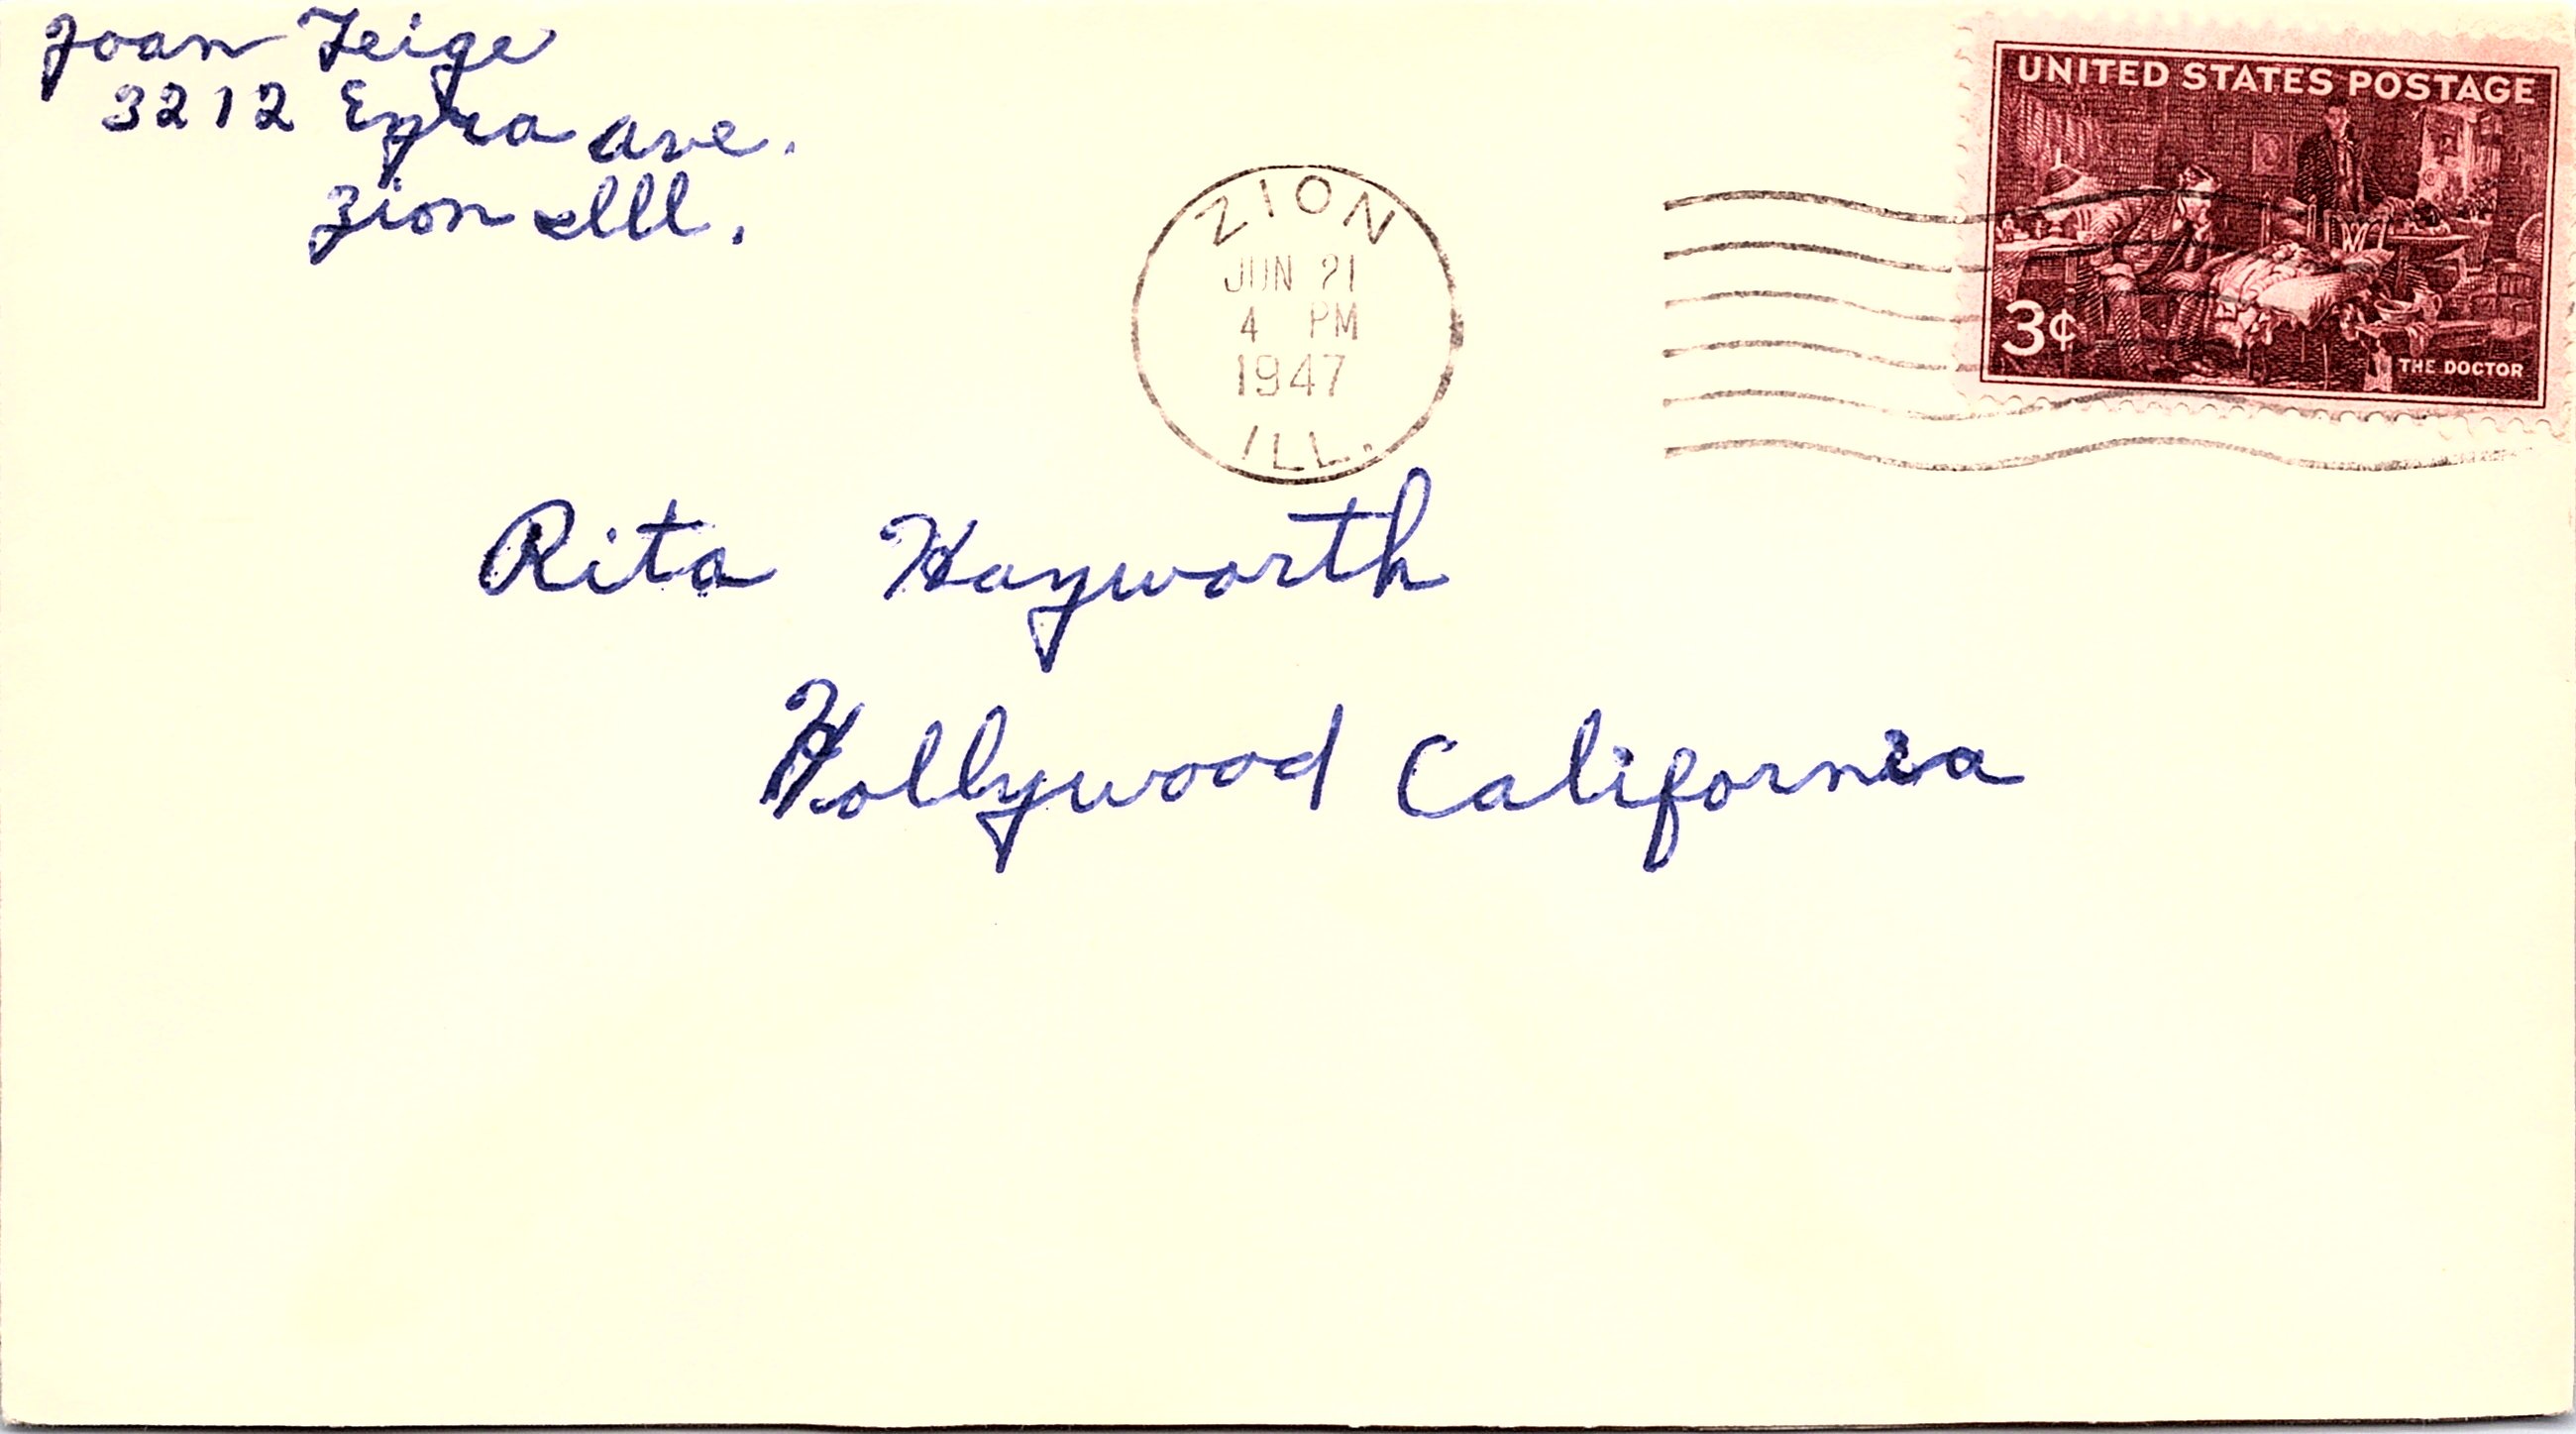 Joan Teige
3212 Ezra Ave.
Zion Ill.
UNITED STATES POSTAGE
3¢
THE DOCTOR
ZION
JUN 21
4 PM
1947
ILL.
Rita Hayworth
Hollywood California